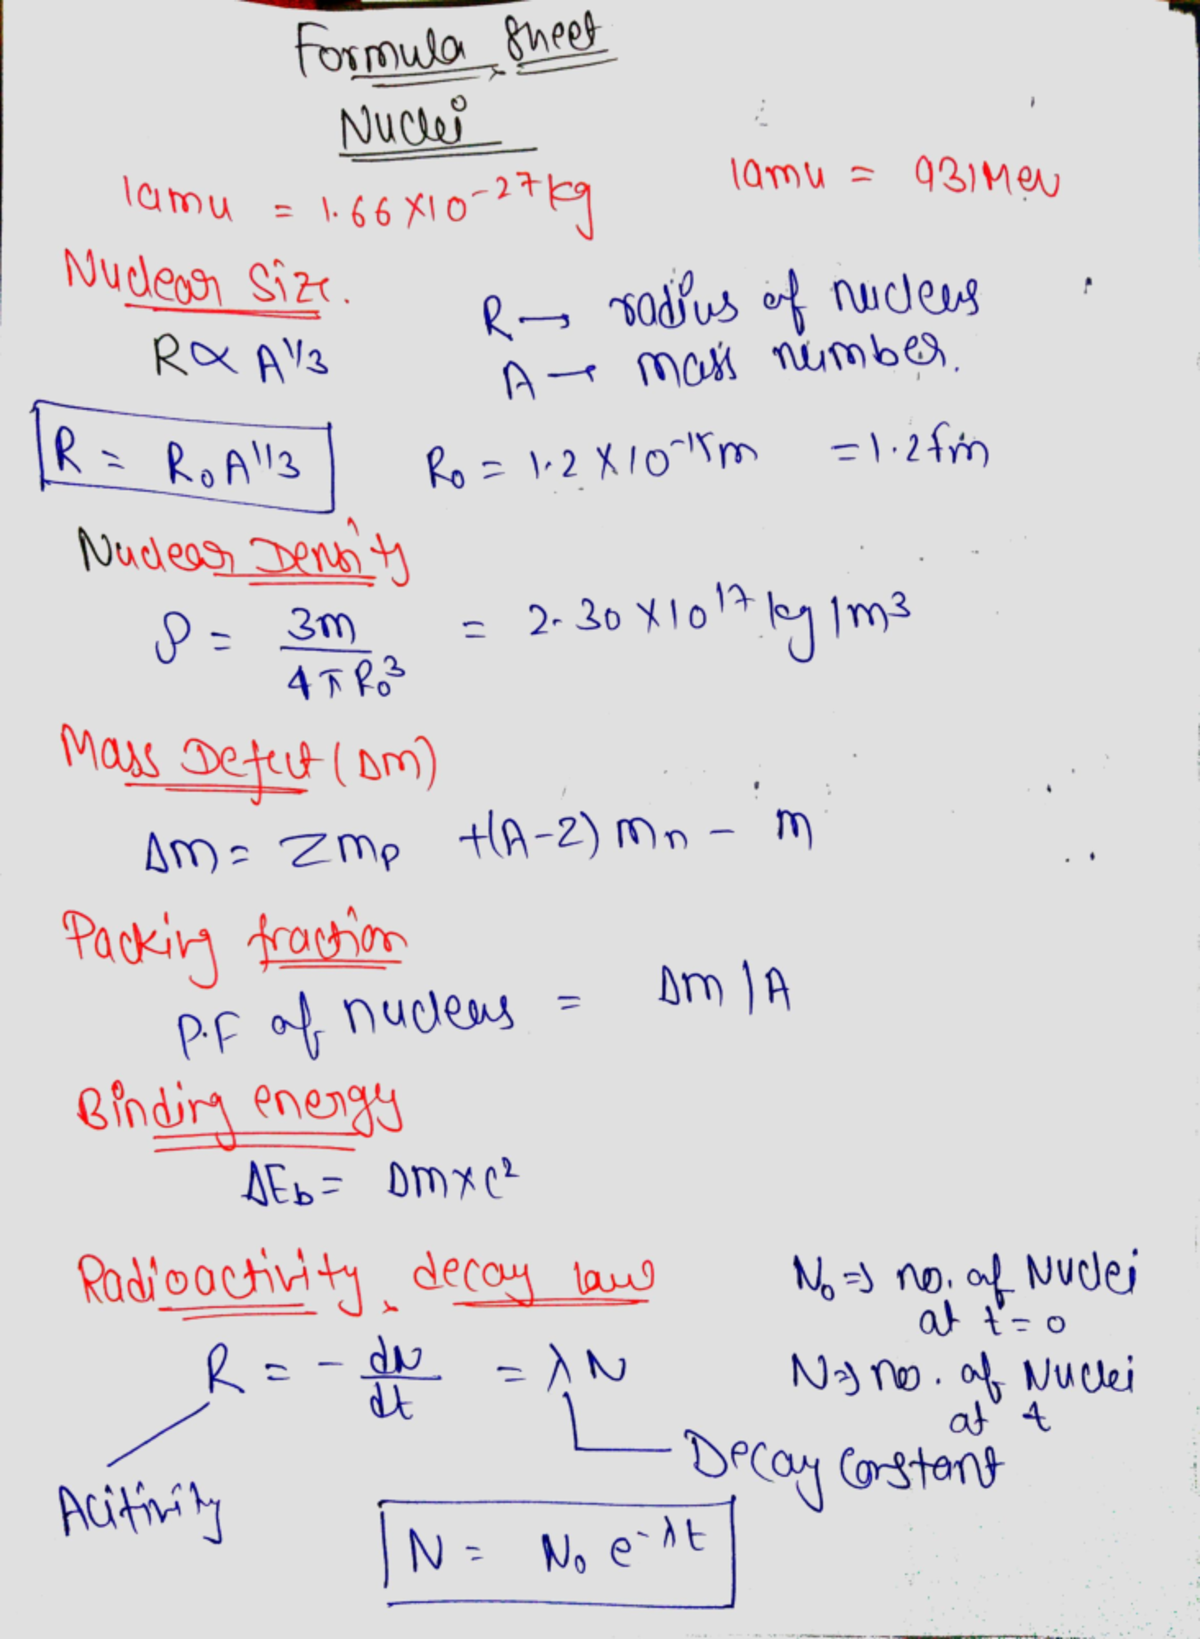 Formula Sheet
Nuclei
1amu = 1.66 X10⁻²⁷kg 1amu = 931Mev
Nuclear Size.
R ∝ A^1/3 R → radius of nucleus
A → mass number.
R = R₀A^1/3 R₀ = 1.2 X10⁻¹⁵m = 1.2fm
Nuclear Density
ρ = 3m / 4πR₀³ = 2.30 X10¹⁷ kg/m³
Mass Defect (Δm)
Δm = Zmp +(A-Z) mn - m
Packing fraction
P.F of nucleus = Δm / A
Binding energy
ΔEb = Δm×c²
Radioactivity decay law
N₀ ⇒ no. of Nuclei
at t = 0
R = - dN/dt = λN
N ⇒ no. of Nuclei
at t
Decay Constant
Acitivity
N = N₀ e^-λt